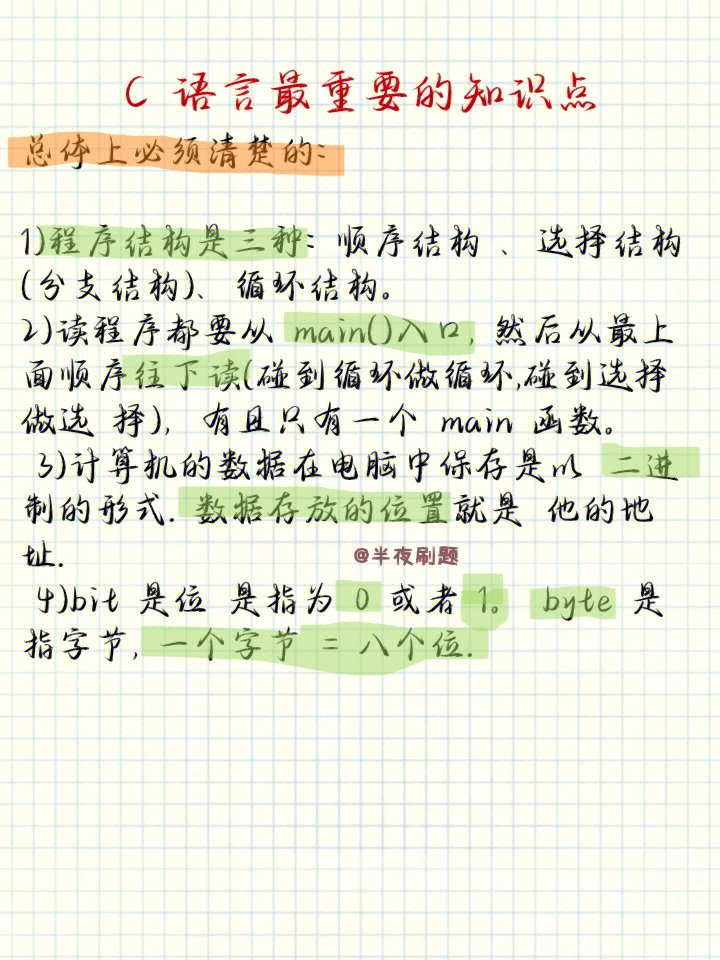 C 语言最重要的知识点
总体上必须清楚的:
1)程序结构是三种: 顺序结构 、选择结构
(分支结构)、循环结构。
2)读程序都要从 main()入口, 然后从最上
面顺序往下读(碰到循环做循环,碰到选择
做选 择), 有且只有一个 main 函数。
3)计算机的数据在电脑中保存是以 二进
制的形式. 数据存放的位置就是 他的地
址.
@半夜刷题
4)bit 是位 是指为 0 或者 1。 byte 是
指字节, 一个字节 = 八个位.